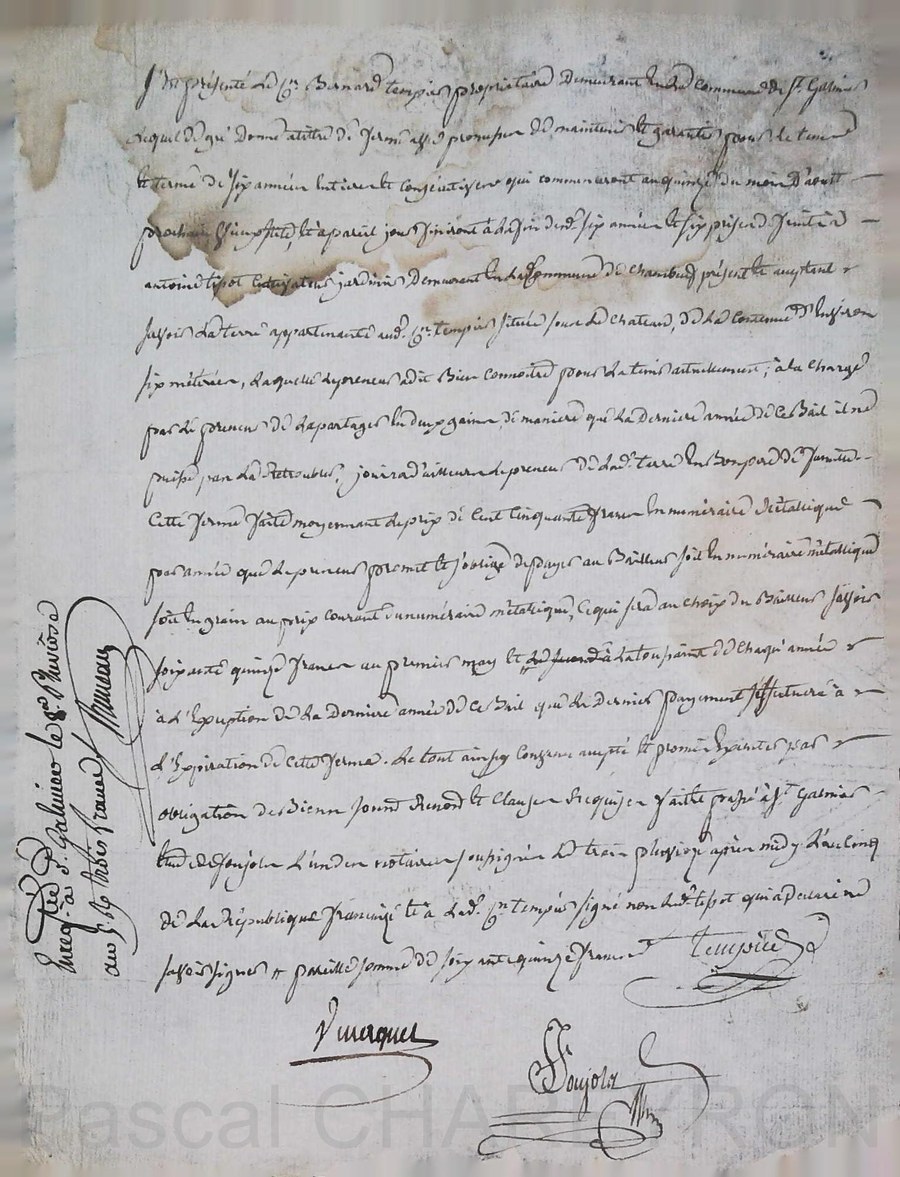 S'est présenté le Cn. Bernard tempier propriétaire demeurant en la Commune de St. Galmier
lequel de gré donne à titre de ferme avec promesse de maintenir et garantir pour le tems
et terme de six années entieres et consécutives qui commenceront au quinze du mois d'aoust
prochain et à pareil jour finiront à la fin desd. six années et six prises de fruits à
antoine tissot Cultivateur jardinier demeurant en la Commune de Chambeuf présent et aceptant
savoir la terre appartenante aud. Cn. tempier située sous le Chateau, de la Contenue d'environ
six méterées, laquelle le preneur a dit Bien Connoitre pour la tenir actuellement, à la charge
par le preneur de la partager en deux gaines, de maniere que la derniere année de ce Bail il ne
puisse pas la Retroubler, jouira d'ailleurs le preneur de lad. terre en Bon pere de famille
Cette ferme faite moyennant le prix de Cent Cinquante francs en numéraire métallique
par année que le preneur promet et s'oblige de payer au Bailleur soit en numéraire métallique
soit en grain au prix courant du numéraire métallique, Ce qui sera au choix du Bailleur savoir
soixante quinze francs au premier may et à la toussaint de Chaque année
à l'Exception de la derniere année de ce Bail que le dernier payement s'effectuera à
l'Expiration de cette ferme. Le tout ainsy Convenu accepté et promis Executer par
obligation de Biens Renon et Clauses Requises faite passé à St. Galmier
Etude de foujols l'un des notaires soussignés le trois pluviose après midy l'an Cinq
de la République française et a led. Cn. tempier signé non led. tissot qui a déclaré ne
savoir signer # pareille somme de soixante quinze francs
tempier
Vmerquet
foujols
Nre
Enregré. à St. Galmier le 8 Pluviose
an 5. Reçu trois francs